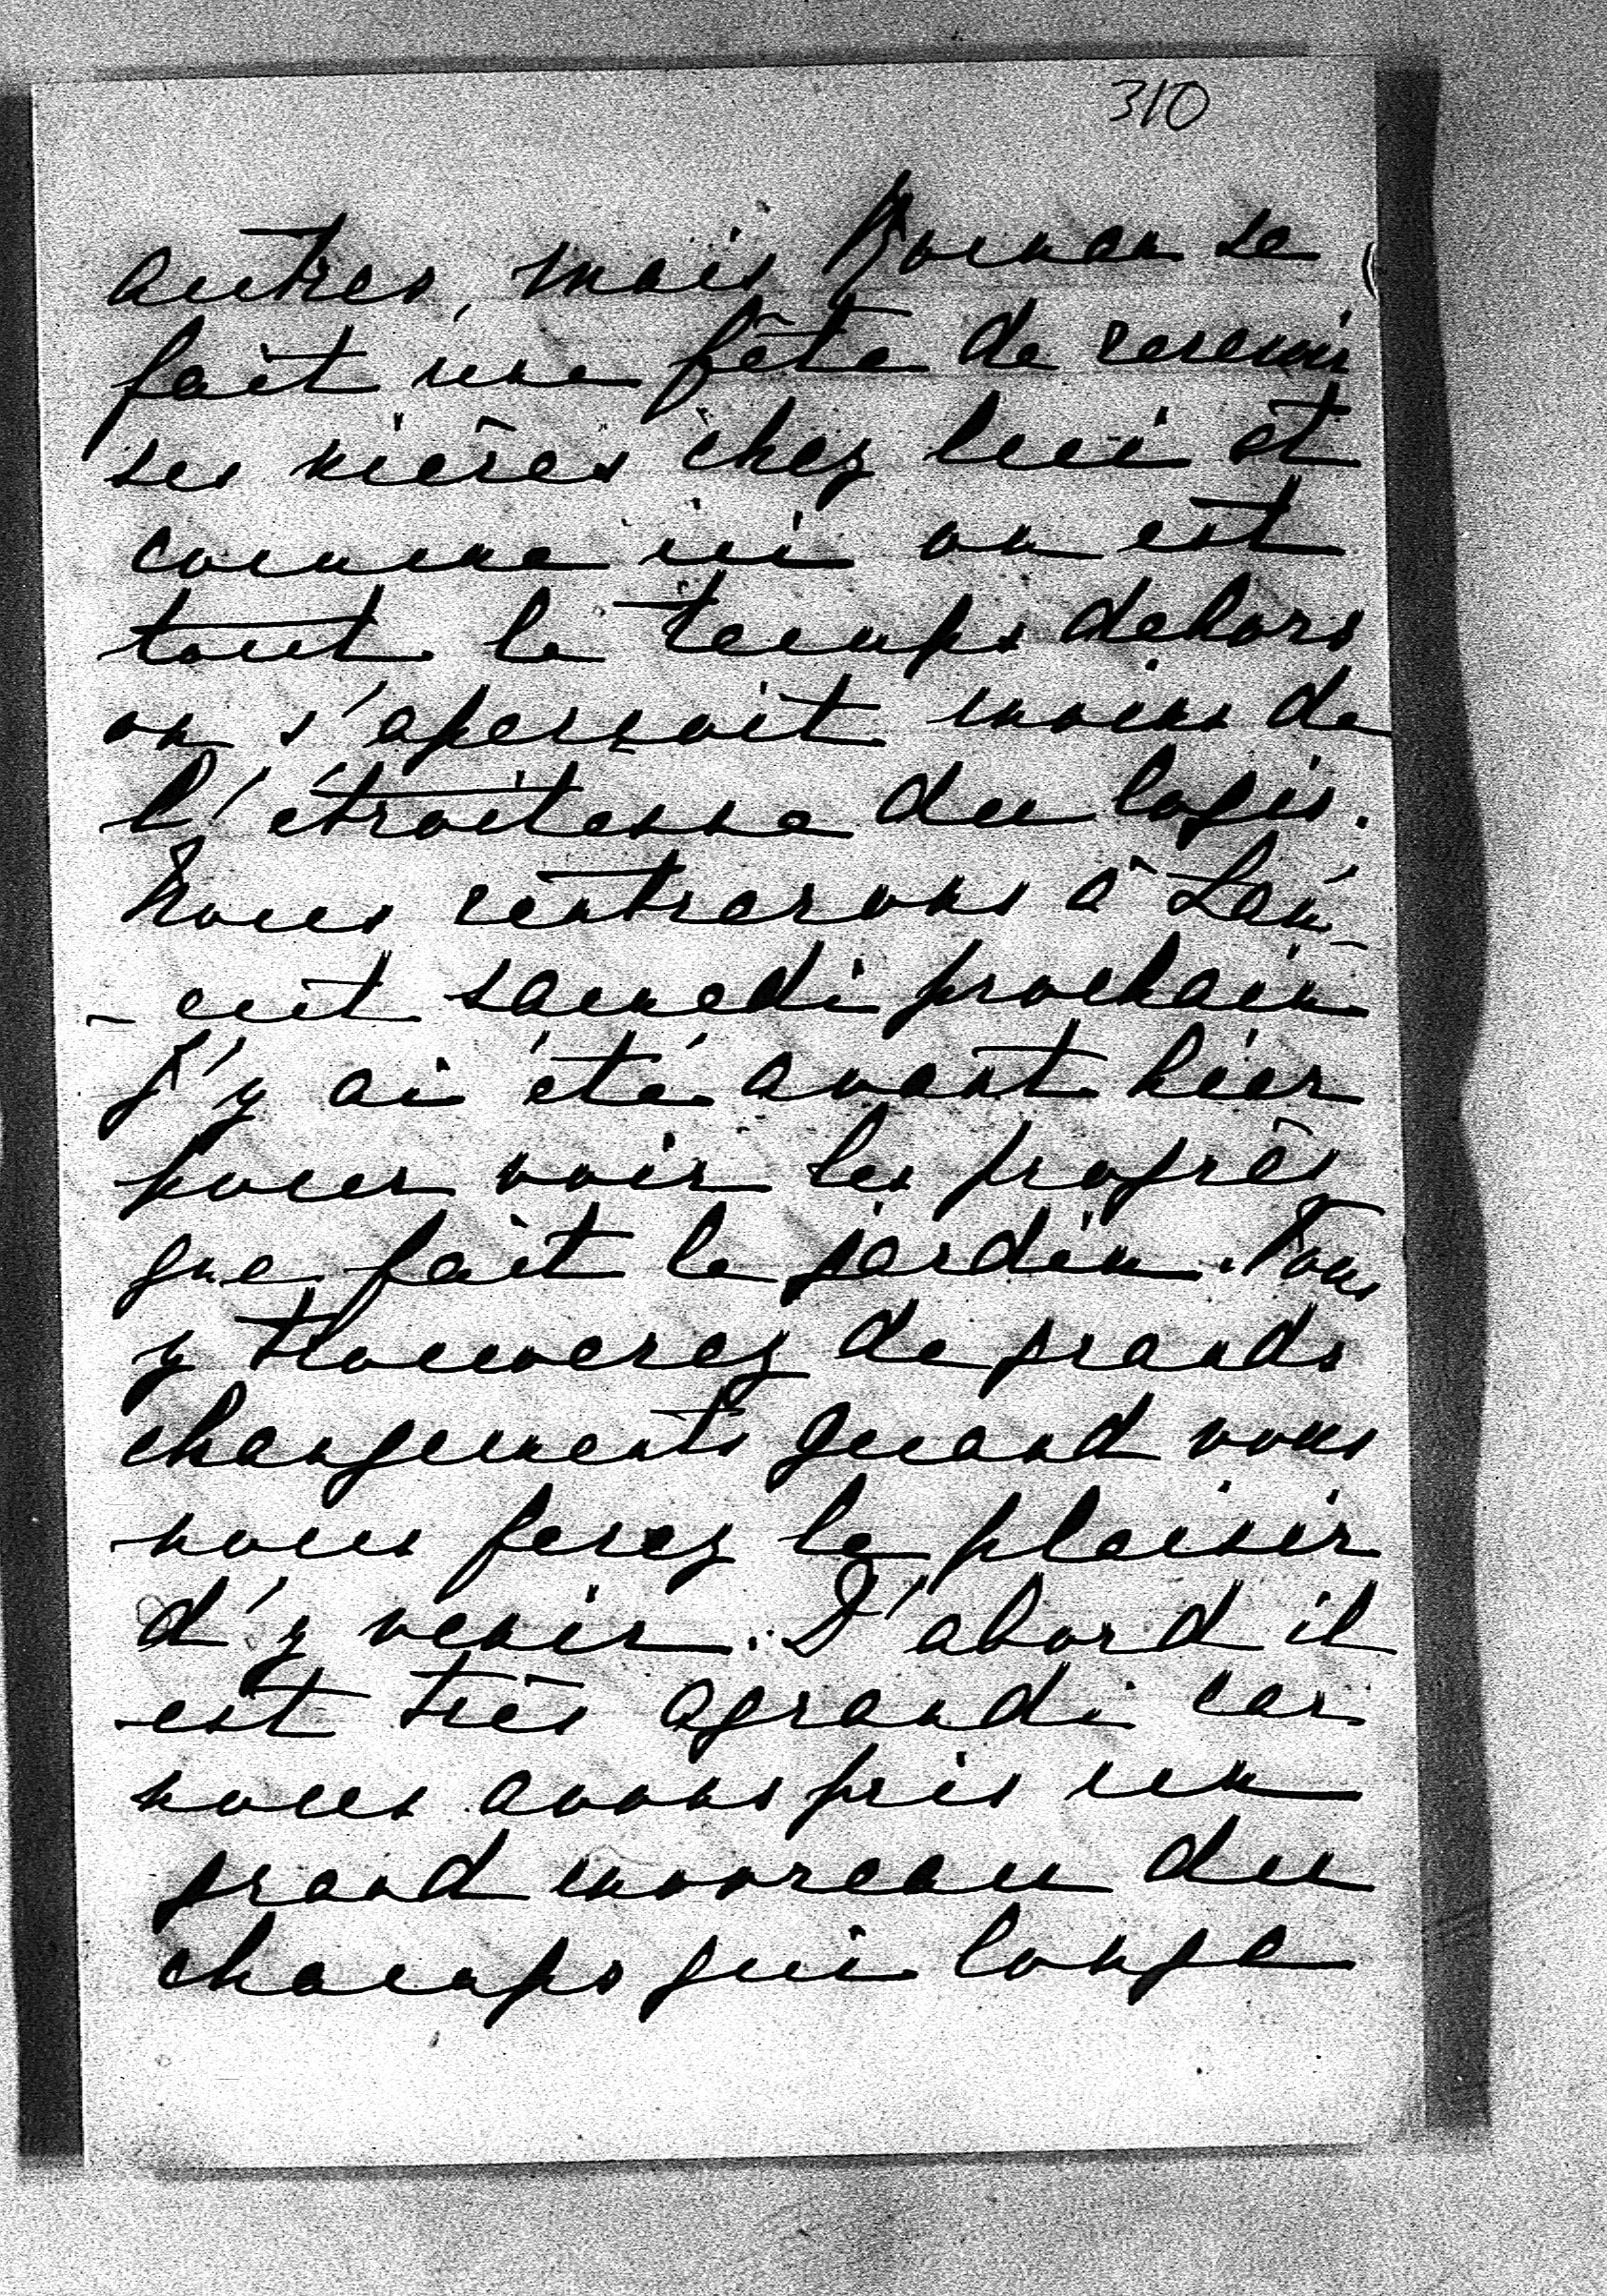 310
autres, mais Roman se
fait une fête de recevoir
ses nièces chez lui et
comme ici on est
tout le temps dehors
on s'aperçoit moins de
l'étroitesse du logis.
Nous rentrerons à Lan-
-cut samedi prochain
J'y ai été avant hier
pour voir les progrès
que fait le jardin. Vous
y trouverez de grands
changements quand vous
nous ferez le plaisir
d'y venir. D'abord il
est très agrandi car
nous avons pris un
grand morceau du
champs qui longe